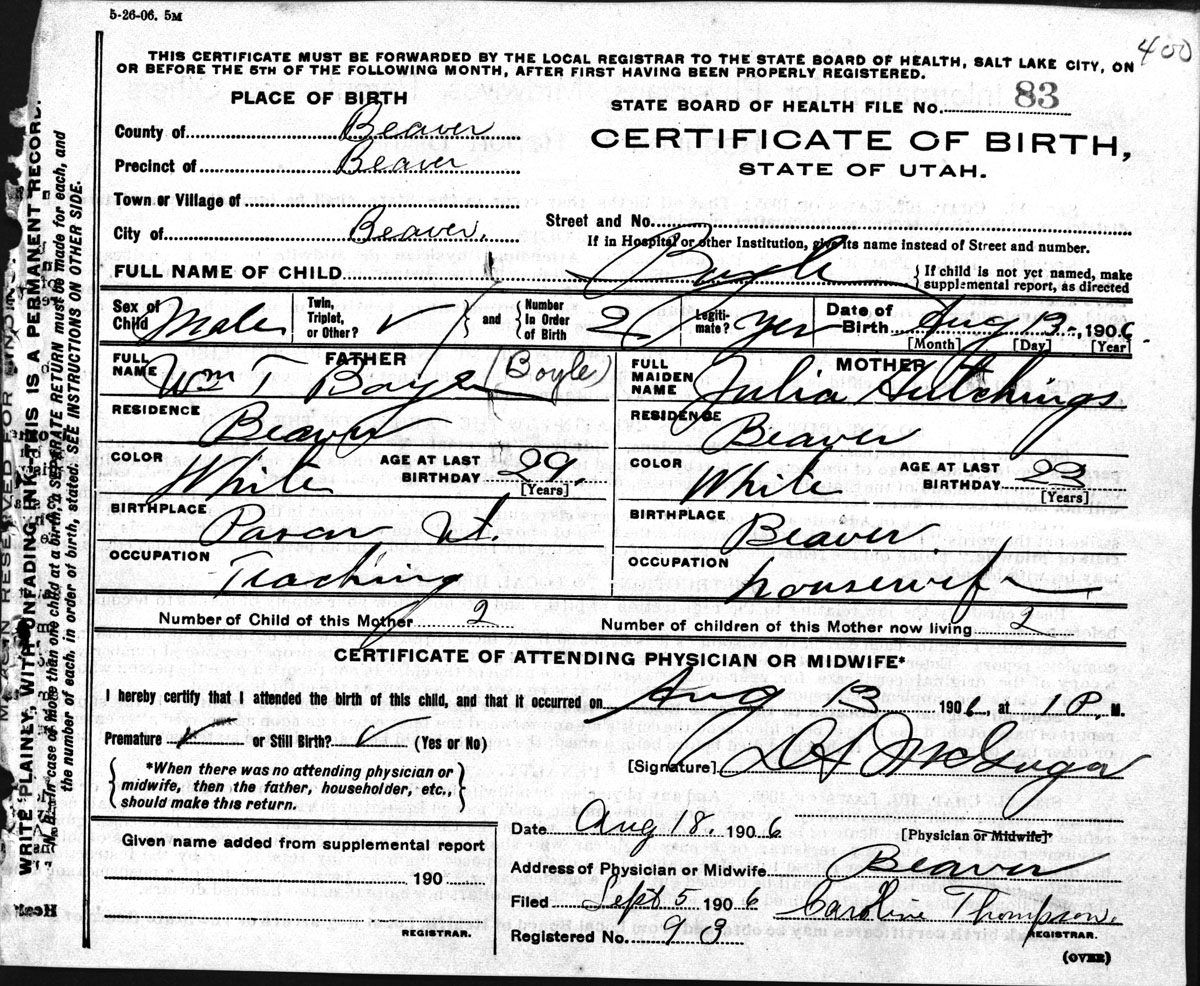 5-26-06. 5M
400
THIS CERTIFICATE MUST BE FORWARDED BY THE LOCAL REGISTRAR TO THE STATE BOARD OF HEALTH, SALT LAKE CITY, ON
OR BEFORE THE 5TH OF THE FOLLOWING MONTH, AFTER FIRST HAVING BEEN PROPERLY REGISTERED.
PLACE OF BIRTH
STATE BOARD OF HEALTH FILE No. 83
County of Beaver
CERTIFICATE OF BIRTH,
Precinct of Beaver
STATE OF UTAH.
Town or Village of
Street and No.
City of Beaver.
If in Hospital or other Institution, give its name instead of Street and number.
FULL NAME OF CHILD Boyle { If child is not yet named, make
supplemental report, as directed
Sex of Child Male Twin, Triplet, or Other? ✓ } and { Number In Order of Birth 2 Legiti- mate? Yes Date of Birth Aug 13, 1906
[Month] [Day] [Year]
FATHER
MOTHER
FULL NAME Wm T Boyle (Boyle)
FULL MAIDEN NAME Julia Hutchings
RESIDENCE Beaver
RESIDENCE Beaver
COLOR White AGE AT LAST BIRTHDAY 29. [Years]
COLOR White AGE AT LAST BIRTHDAY 23 [Years]
BIRTHPLACE Ut.
BIRTHPLACE Beaver.
OCCUPATION Teaching
OCCUPATION housewif
Number of Child of this Mother 2
Number of children of this Mother now living 2
CERTIFICATE OF ATTENDING PHYSICIAN OR MIDWIFE*
I hereby certify that I attended the birth of this child, and that it occurred on Aug 13 1906, at 1 P. M.
Premature ✓ or Still Birth? ✓ (Yes or No)
[Signature]
{ *When there was no attending physician or
midwife, then the father, householder, etc.,
should make this return. }
Date Aug 18. 1906
[Physician or Midwife]
Given name added from supplemental report
Address of Physician or Midwife Beaver
190
Filed Sept 5 1906 Caroline Thompson.
REGISTRAR.
REGISTRAR.
Registered No. 93
(OVER)
WRITE PLAINLY, WITH UNFADING INK—THIS IS A PERMANENT RECORD.
N. B.—In case of more than one child at a birth, a SEPARATE RETURN must be made for each, and
the number of each, in order of birth, stated. SEE INSTRUCTIONS ON OTHER SIDE.